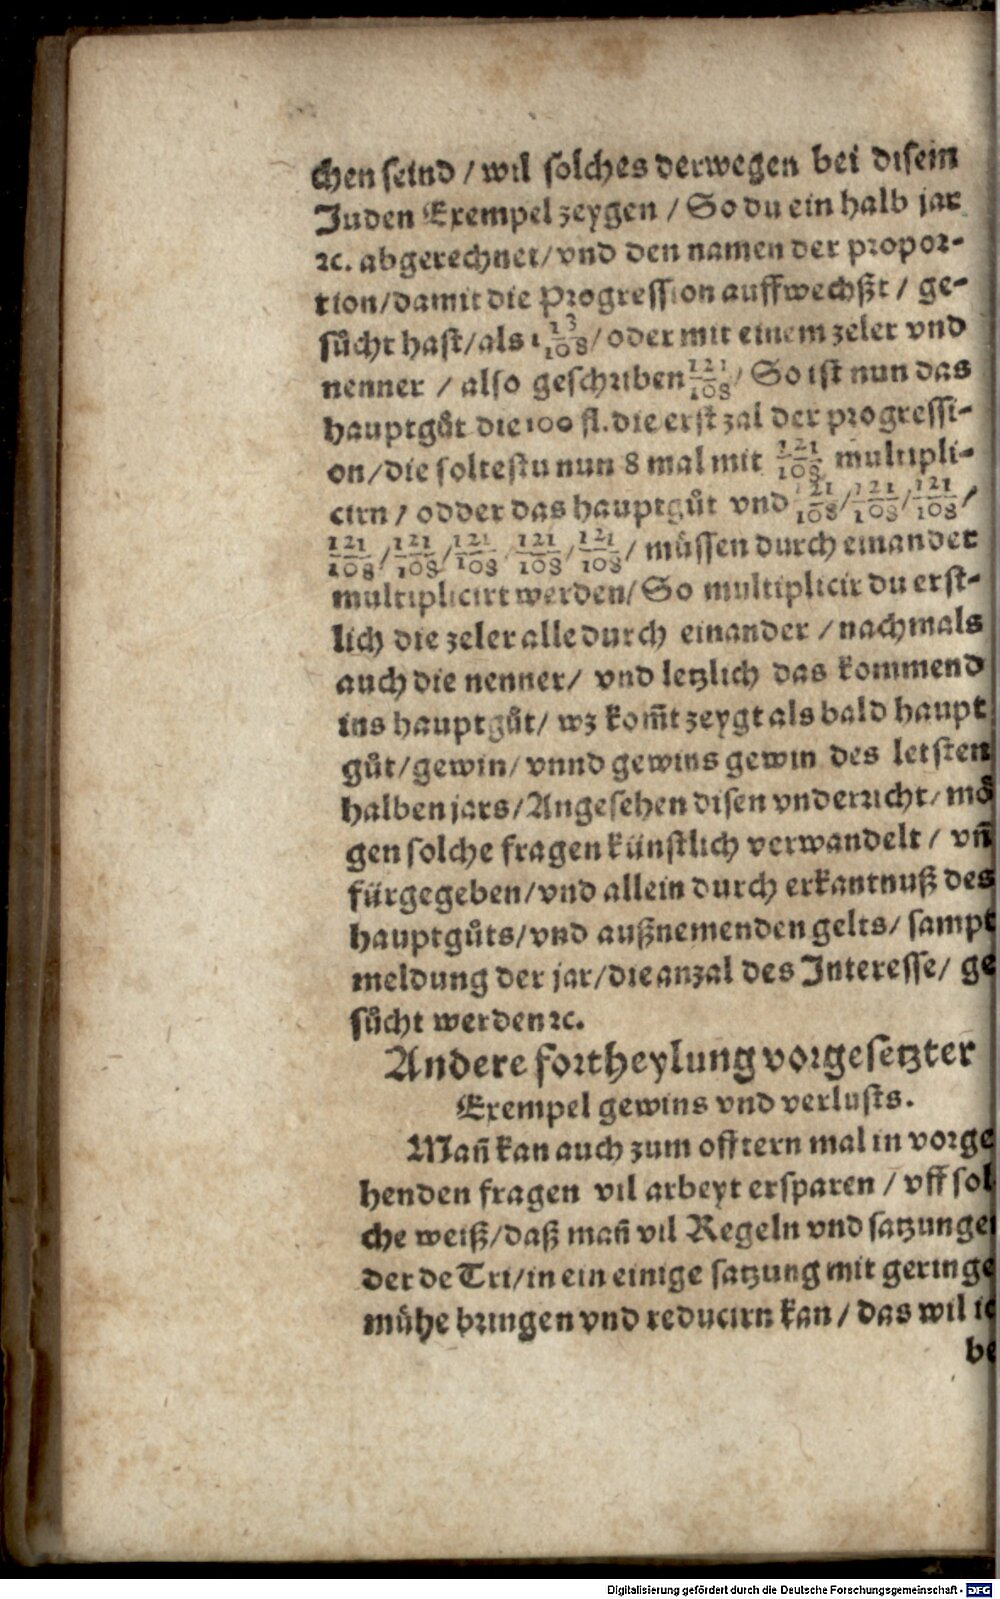 chen seind / wil solches derwegen bei disem
Juden Exempel zeygen / So du ein halb jar
ꝛc. abgerechnet / vnd den namen der propor-
tion / damit die Progression auffwechßt / ge-
sůcht hast / als 1 13/108 / oder mit einem zeler vnd
nenner / also geschriben 121/108 / So ist nun das
hauptgůt die 100 fl. die erst zal der progressi-
on / die soltestu nun 8 mal mit 121/108 multipli-
cirn / odder das hauptgůt vnd 121/108 / 121/108 / 121/108 /
121/108 / 121/108 / 121/108 / 121/108 / 121/108 / müssen durch einander
multiplicirt werden / So multiplicir du erst-
lich die zeler alle durch einander / nachmals
auch die nenner / vnd letzlich das kommend
ins hauptgůt / wz kom̄t zeygt als bald haupt
gůt / gewin / vnnd gewins gewin des letsten
halben jars / Angesehen disen vnderricht / mö
gen solche fragen künstlich verwandelt / vn̄
fürgegeben / vnd allein durch erkantnuß des
hauptgůts / vnd außnemenden gelts / sampt
meldung der jar / die anzal des Interesse / ge
sůcht werden ꝛc.
Andere fortheylung vorgesetzter
Exempel gewins vnd verlusts.
Man̄ kan auch zum offtern mal in vorge
henden fragen vil arbeyt ersparen / vff sol
che weiß / daß man̄ vil Regeln vnd satzunge
der de Tri / in ein einige satzung mit geringe
mühe bringen vnd reducirn kan / das wil ic
be
Digitalisierung gefördert durch die Deutsche Forschungsgemeinschaft - DFG